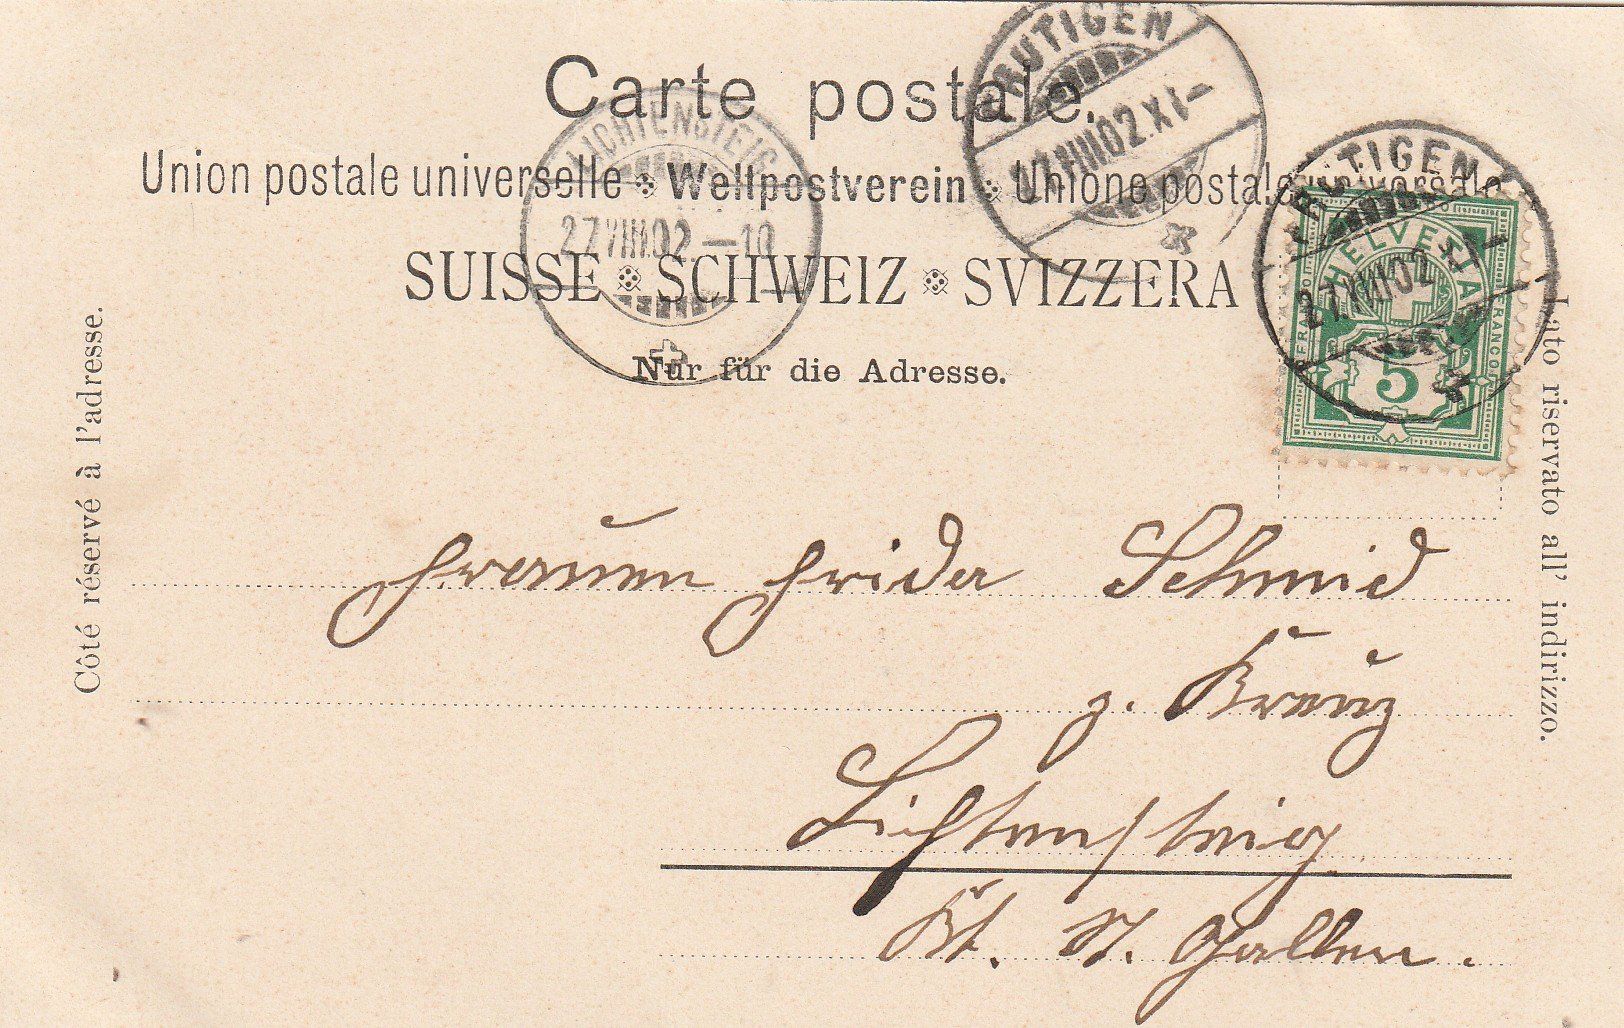 Carte postale.
Union postale universelle Weltpostverein Unione postale universale
SUISSE SCHWEIZ SVIZZERA
Nur für die Adresse.
Côté réservé à l'adresse.
Lato riservato all' indirizzo.
LICHTENSTEIG
27.VIII.02.–10
FRUTIGEN
27.VIII.02.XI–
FRUTIGEN
27.VIII.02.XI–
HELVETIA
FRANCO
5
Frauen Frida Schmid
z. Kreuz
Lichtensteig
Kt. St. Gallen.